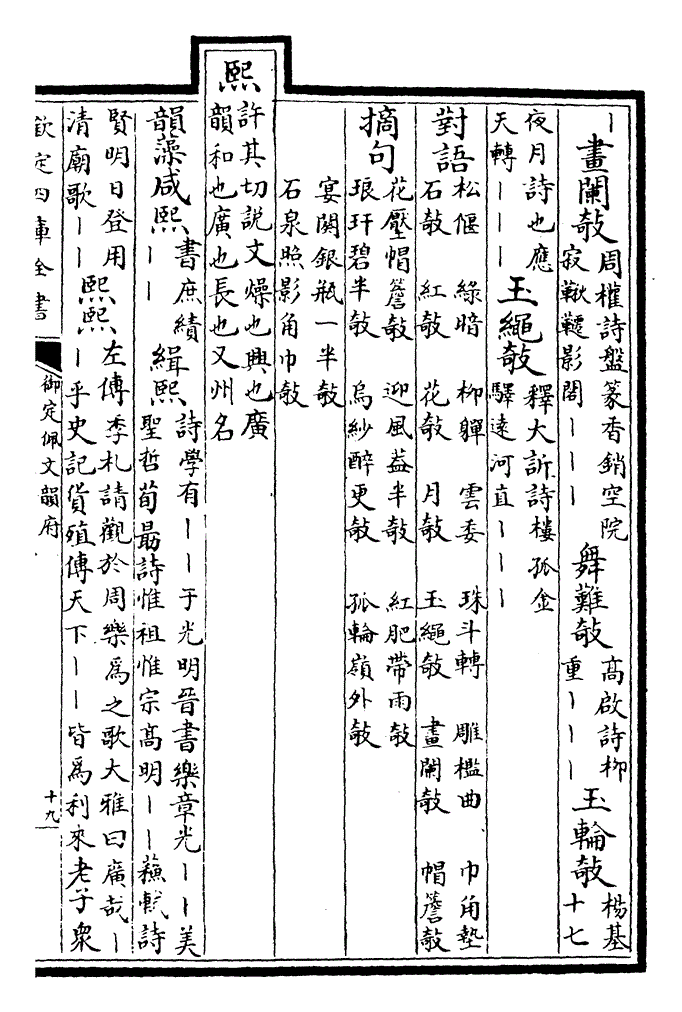 ｜畫闌攲
周權詩盤篆香銷空院
寂鞦韆影閣｜｜｜
舞難攲
高啟詩柳
重｜｜｜
玉輪攲
楊基
十七
夜月詩也應
天轉｜｜｜
玉繩攲
釋大訢詩樓孤金
驛遠河直｜｜｜
對語
松偃　綠暗　柳嚲　雲委　珠斗轉　雕檻曲　巾角墊
石攲　紅攲　花攲　月攲　玉繩攲　畫闌攲　帽簷攲
摘句
花壓帽簷攲　迎風葢半攲　紅肥帶雨攲
琅玕碧半攲　烏紗醉更攲　孤輪嶺外攲
宴闋銀瓶一半攲
石泉照影角巾攲
熙
許其切說文燥也興也廣
韻和也廣也長也又州名
韻藻咸熙
書庶績
｜｜
緝熙
詩學有｜｜于光明晉書樂章光｜｜美
聖哲荀勗詩惟祖惟宗高明｜｜蘇軾詩
賢明日登用
清廟歌｜｜
熙熙
左傳季札請觀於周樂爲之歌大雅曰廣哉｜
｜乎史記貨殖傳天下｜｜皆爲利來老子衆
欽定四庫全書
御定佩文韻府
十九